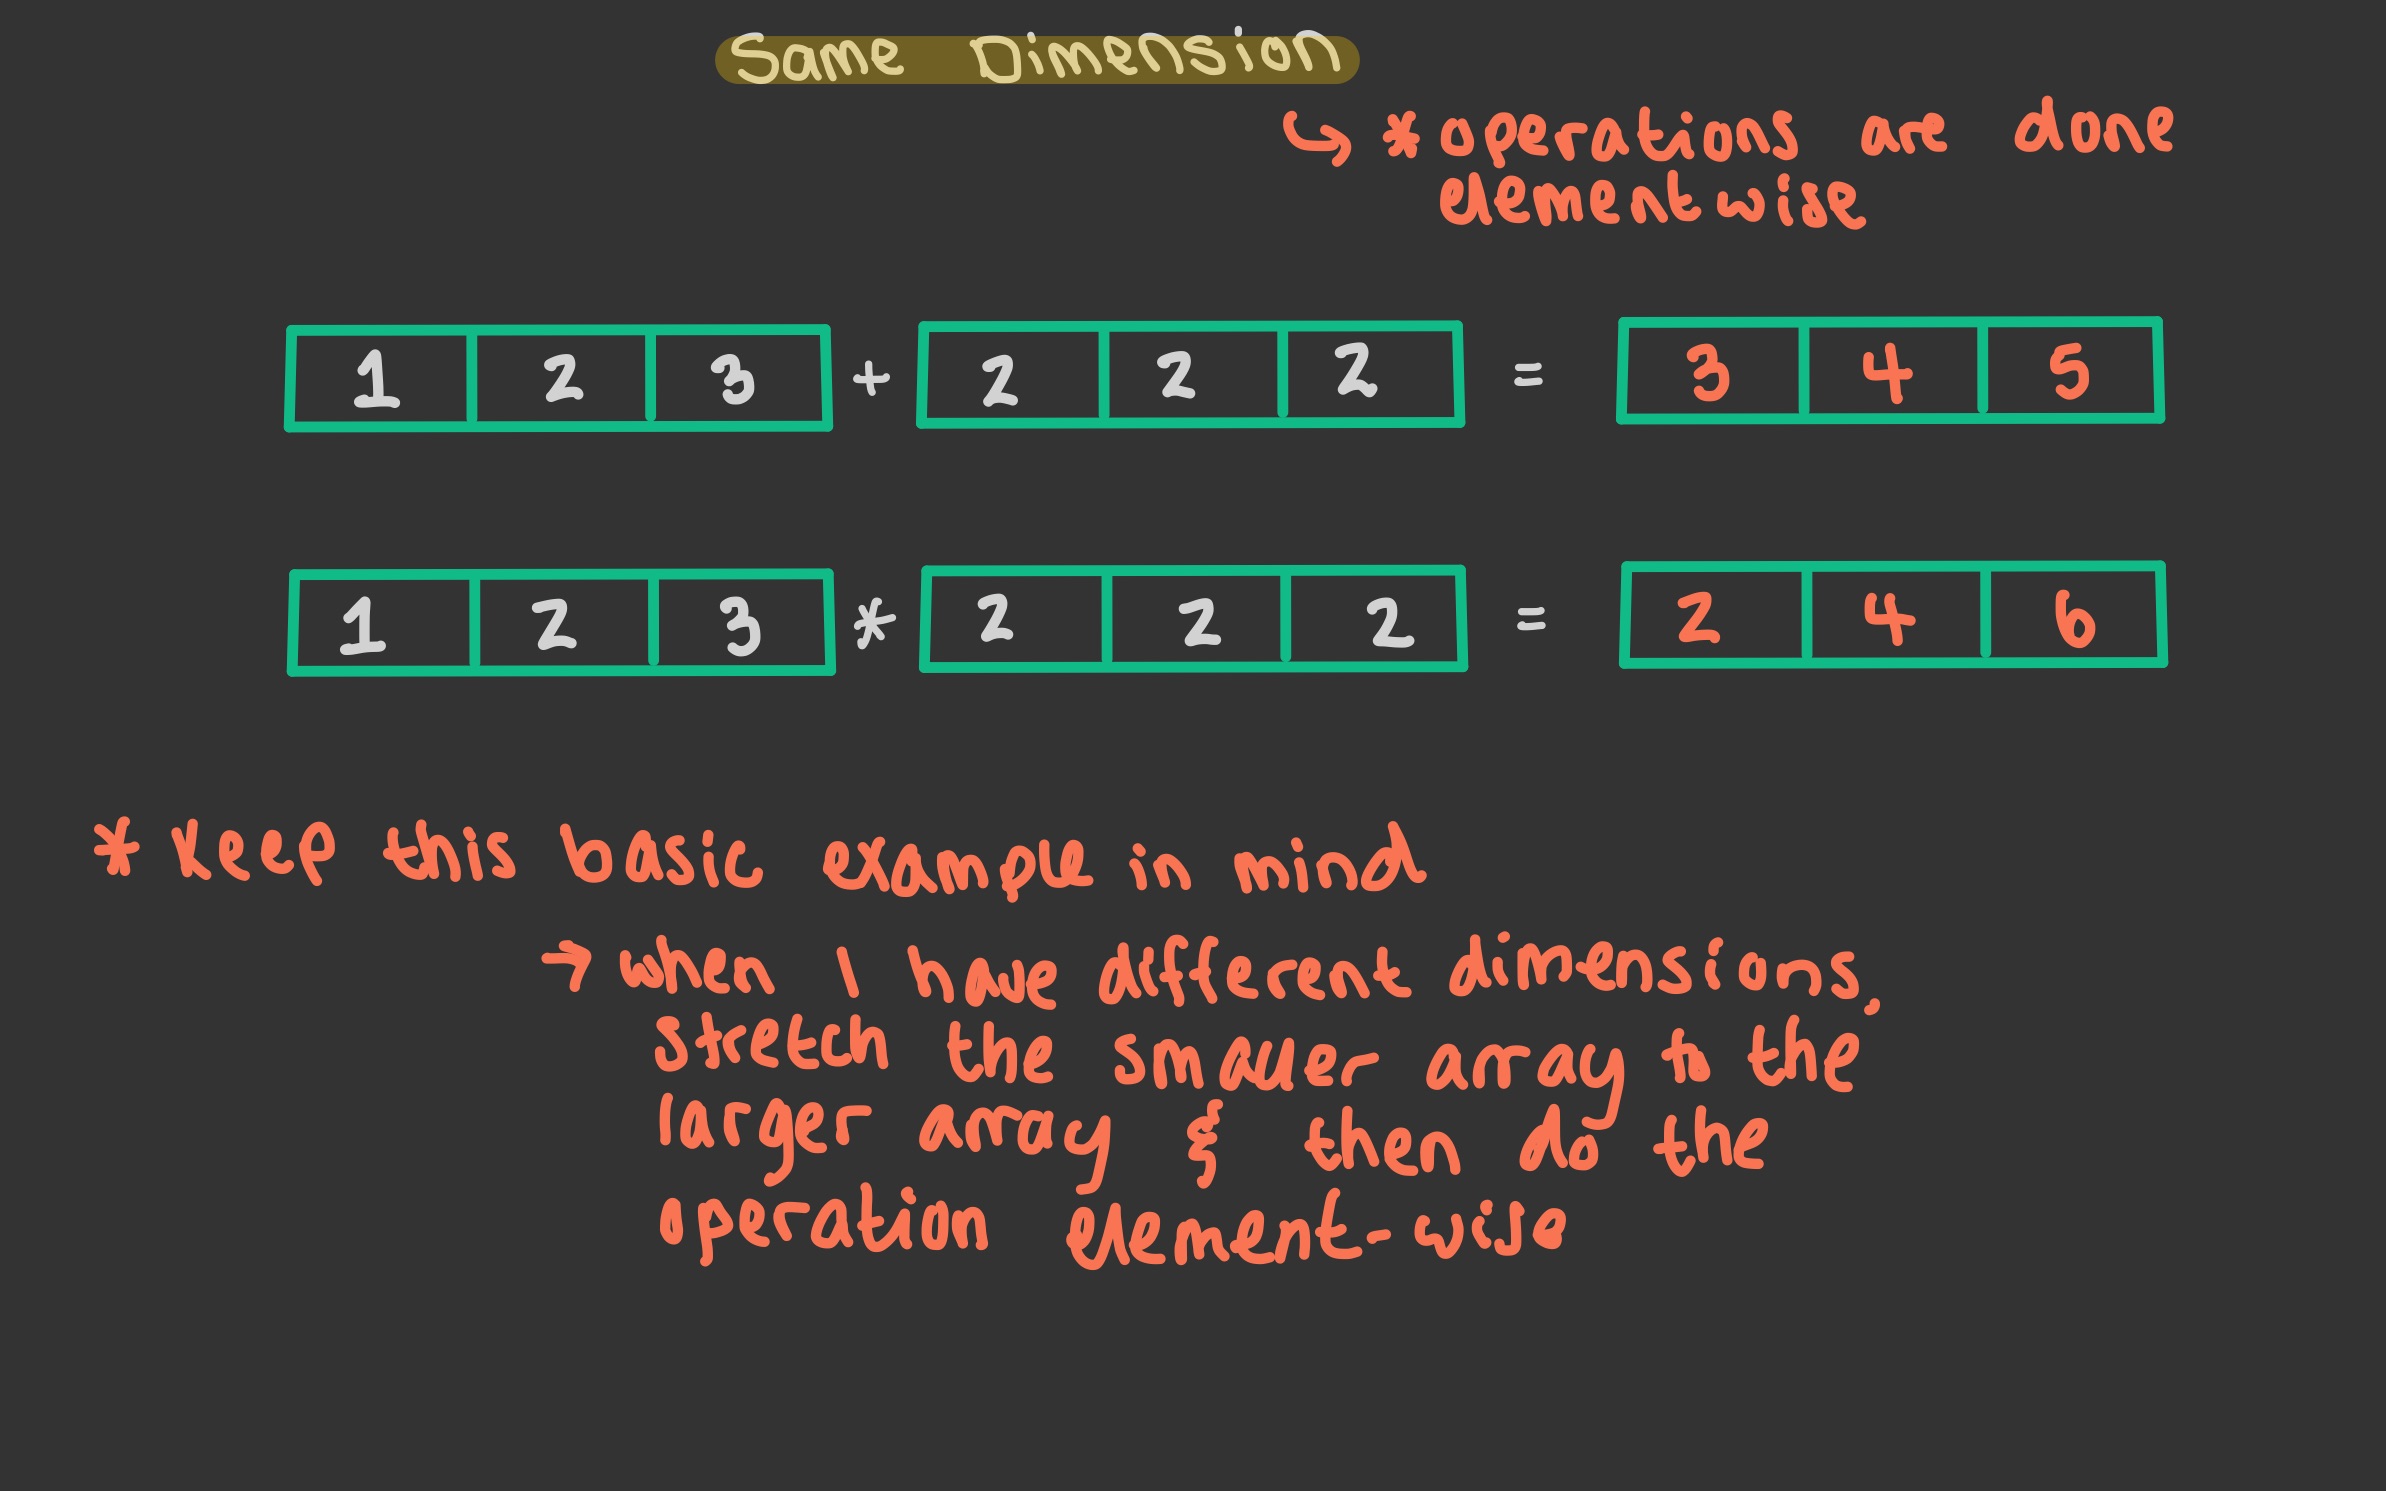 Same Dimension
↳ * operations are done
elementwise
1 2 3 + 2 2 2 = 3 4 5
1 2 3 * 2 2 2 = 2 4 6
* keep this basic example in mind
→ when I have different dimensions,
stretch the smaller array to the
larger array & then do the
operation element-wise